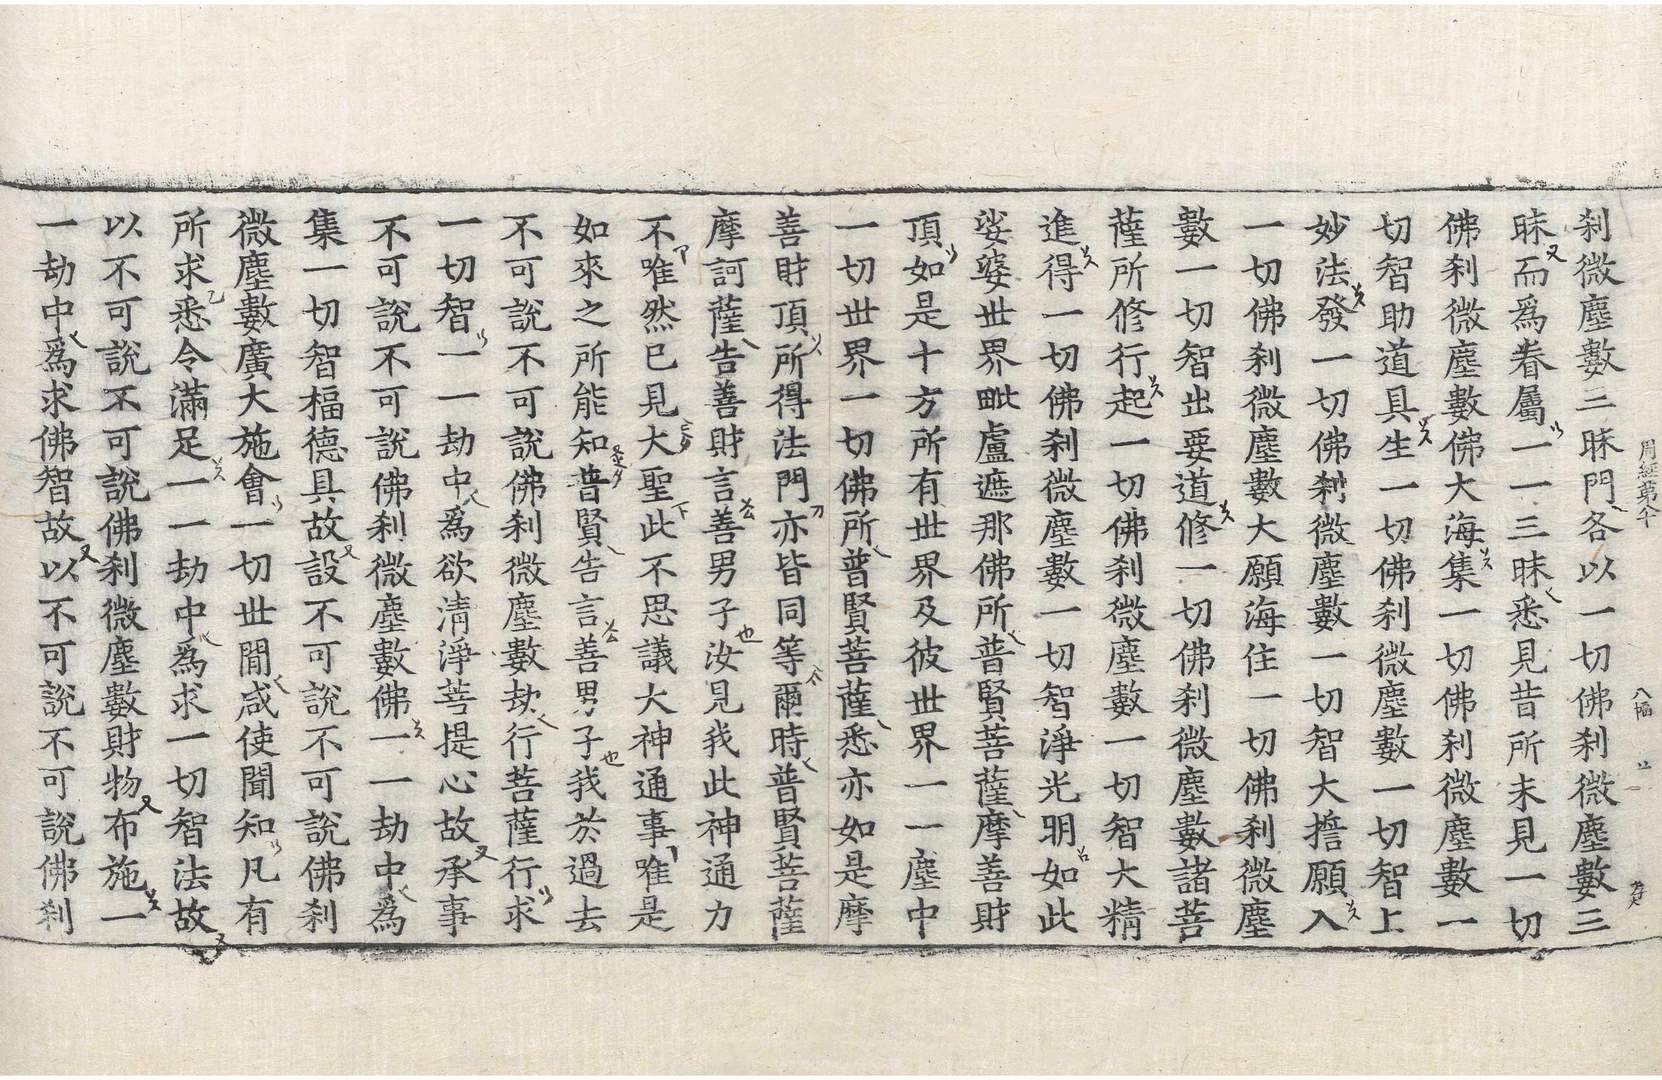 周經第八十　八幅
刹微塵數三昧門各以一切佛刹微塵數三
昧而爲眷屬一一三昧悉見昔所未見一切
佛刹微塵數佛大海集一切佛刹微塵數一
切智助道具生一切佛刹微塵數一切智上
妙法發一切佛刹微塵數一切智大擔願入
一切佛刹微塵數大願海住一切佛刹微塵
數一切智出要道修一切佛刹微塵數諸菩
薩所修行起一切佛刹微塵數一切智大精
進得一切佛刹微塵數一切智淨光明如此
娑婆世界毗盧遮那佛所普賢菩薩摩善財
頂如是十方所有世界及彼世界一一塵中
一切世界一切佛所普賢菩薩悉亦如是摩
善財頂所得法門亦皆同等爾時普賢菩薩
摩訶薩告善財言善男子汝見我此神通力
不唯然已見大聖此不思議大神通事唯是
如來之所能知普賢告言善男子我於過去
不可說不可說佛刹微塵數劫行菩薩行求
一切智一一劫中爲欲淸淨菩提心故承事
不可說不可說佛刹微塵數佛一一劫中爲
集一切智福德具故設不可說不可說佛刹
微塵數廣大施會一切世間咸使聞知凡有
所求悉令滿足一一劫中爲求一切智法故
以不可說不可說佛刹微塵數財物布施一
一劫中爲求佛智故以不可說不可說佛刹